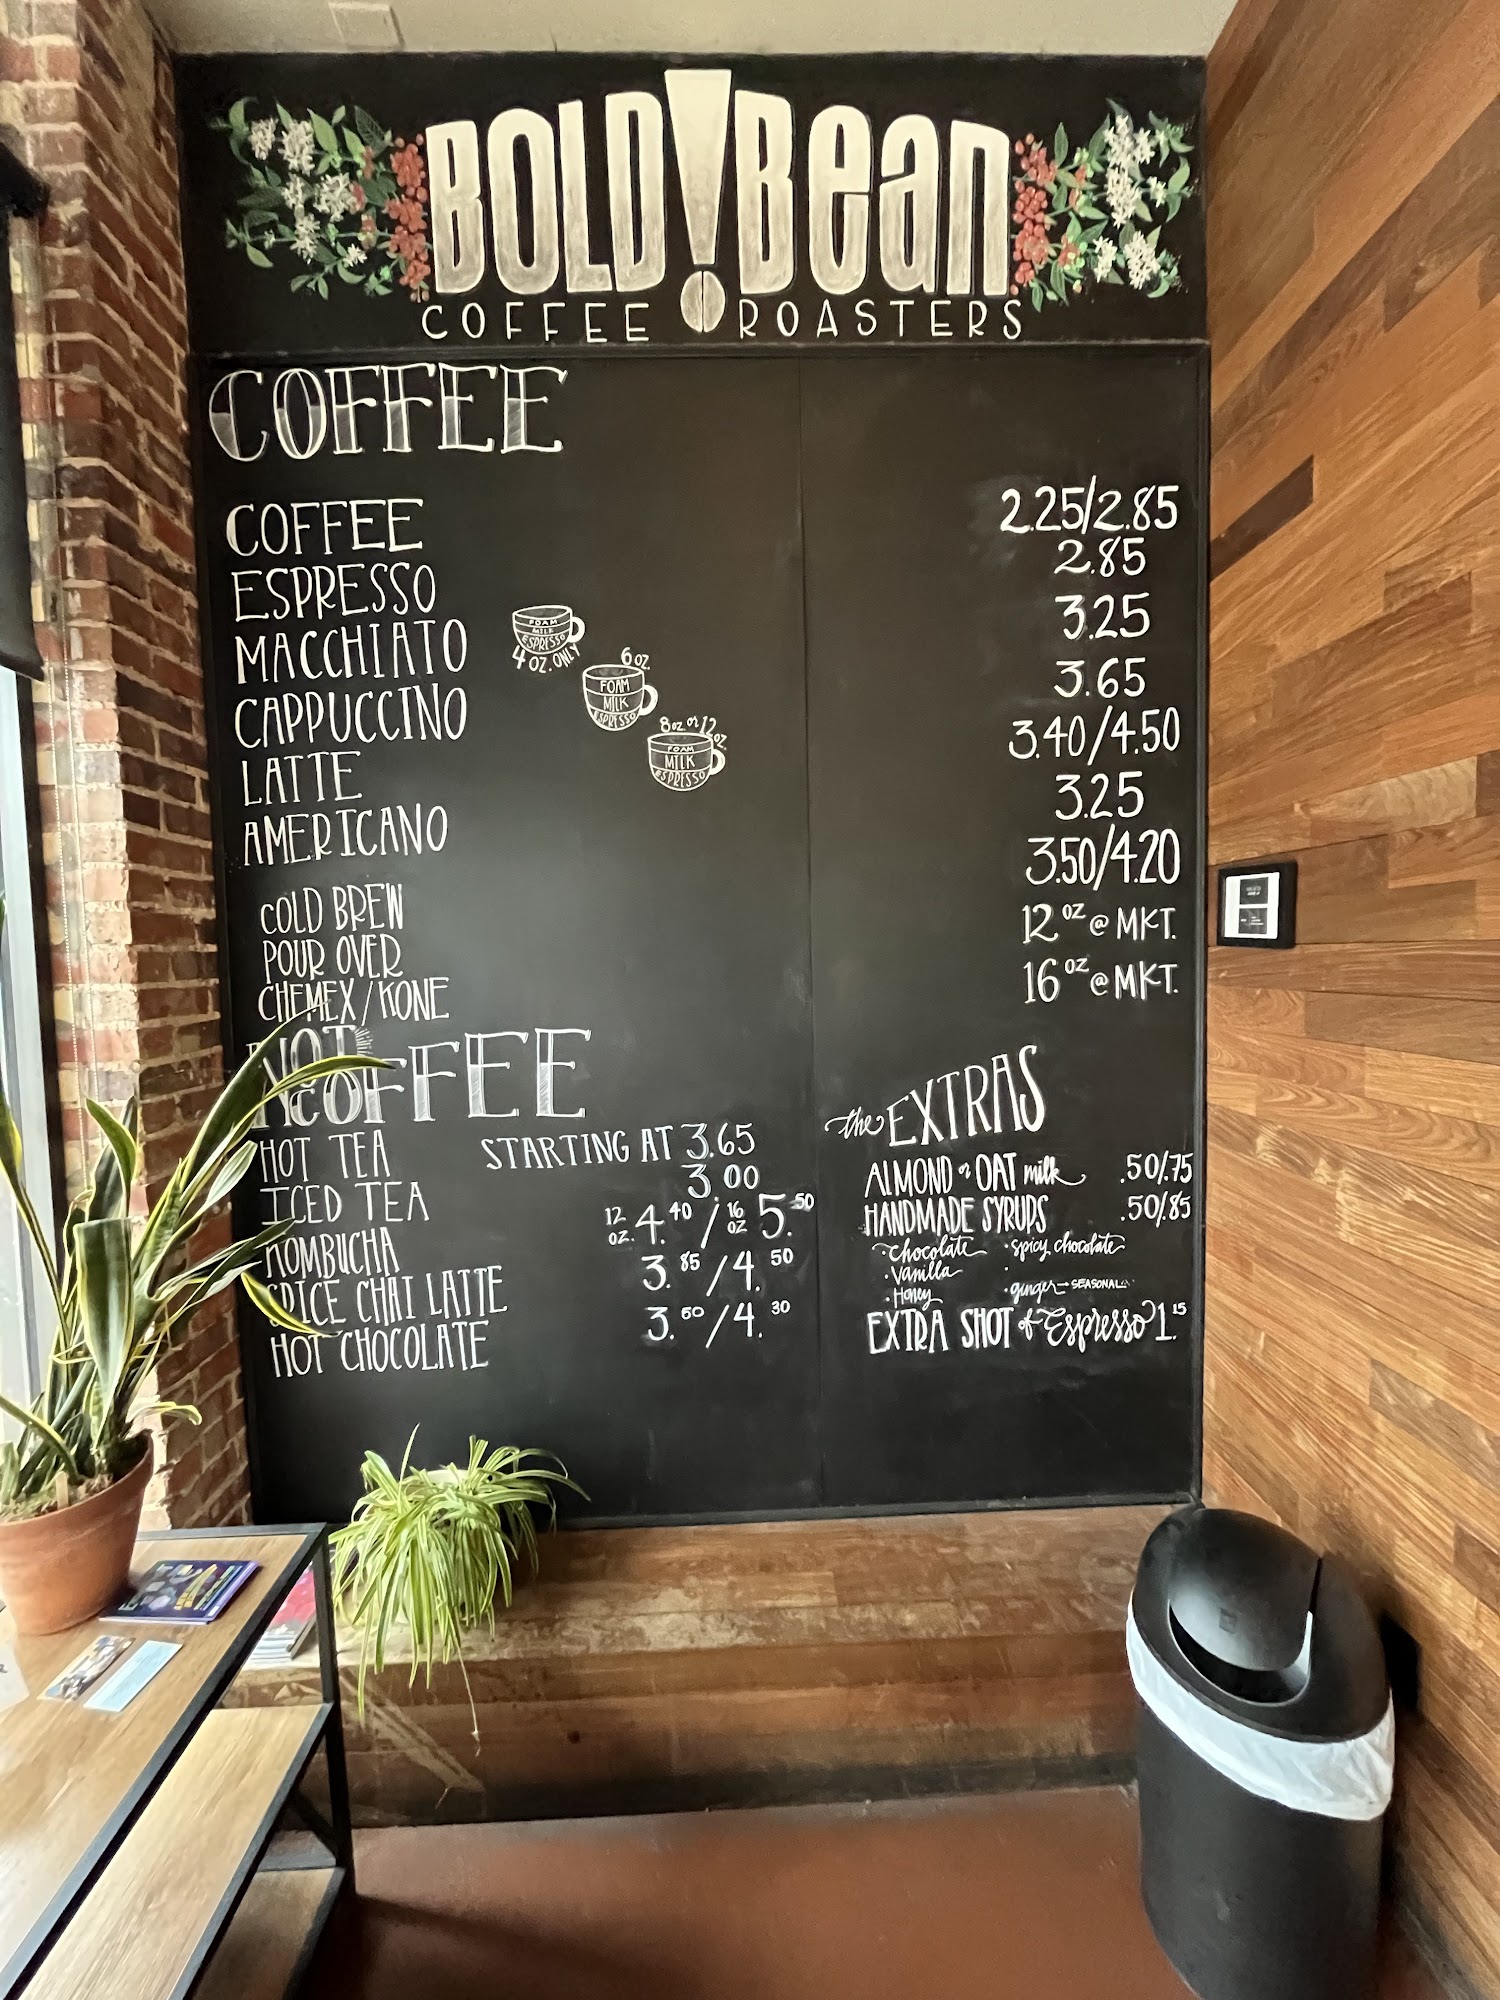 BOLD!Bean
COFFEE ROASTERS
COFFEE
COFFEE 2.25/2.85
ESPRESSO 2.85
MACCHIATO 3.25
FOAM
MILK
ESPRESSO
4 OZ. ONLY
CAPPUCCINO 3.65
6 OZ.
FOAM
MILK
ESPRESSO
LATTE 3.40/4.50
8 OZ. or 12 OZ.
FOAM
MILK
ESPRESSO
AMERICANO 3.25
COLD BREW 3.50/4.20
POUR OVER 12 OZ @ MKT.
CHEMEX/KONE 16 OZ @ MKT.
NOT
COFFEE
HOT TEA STARTING AT 3.65
ICED TEA 3.00
KOMBUCHA 12 OZ. 4.40 / 16 OZ 5.50
SPICE CHAI LATTE 3.85/4.50
HOT CHOCOLATE 3.50/4.30
the EXTRAS
ALMOND or OAT milk .50/.75
HANDMADE SYRUPS .50/.85
· chocolate · spicy chocolate
· Vanilla ·
· Honey · ginger → SEASONAL
EXTRA SHOT of Espresso 1.15